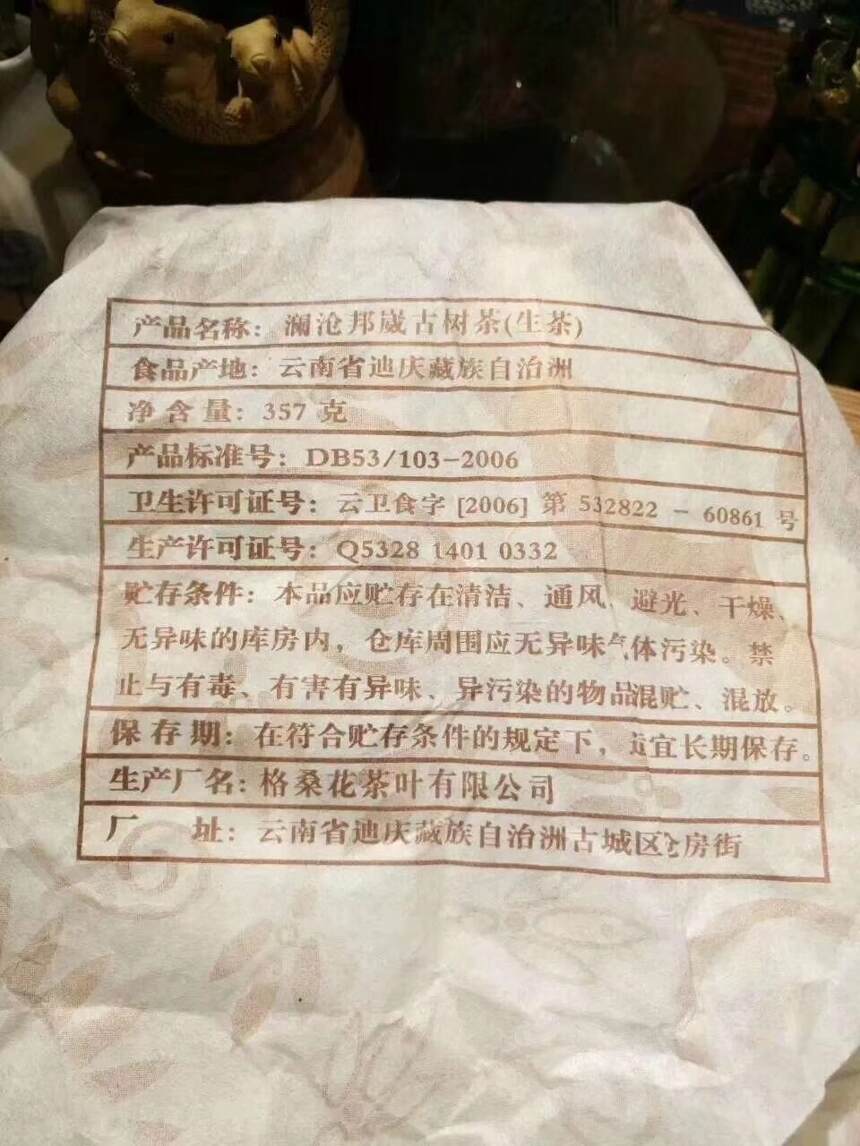 产品名称：澜沧邦崴古树茶(生茶)
食品产地：云南省迪庆藏族自治洲
净含量：357 克
产品标准号：DB53/103-2006
卫生许可证号：云卫食字 [2006] 第 532822 - 60861 号
生产许可证号：Q5328 1401 0332
贮存条件：本品应贮存在清洁、通风、避光、干燥、
无异味的库房内，仓库周围应无异味气体污染。禁
止与有毒、有害有异味、异污染的物品混贮、混放。
保存期：在符合贮存条件的规定下，宜长期保存。
生产厂名：格桑花茶叶有限公司
厂 址：云南省迪庆藏族自治洲古城区仓房街